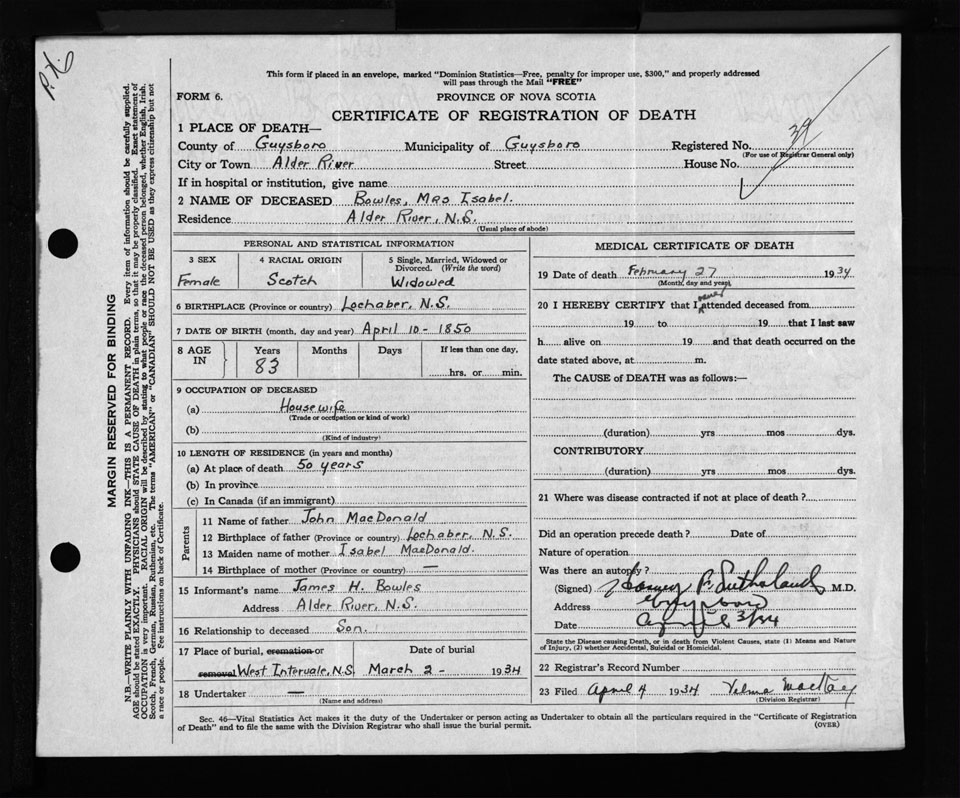 P.X.
This form if placed in an envelope, marked "Dominion Statistics—Free, penalty for improper use, $300," and properly addressed
will pass through the Mail "FREE"
FORM 6.
PROVINCE OF NOVA SCOTIA
CERTIFICATE OF REGISTRATION OF DEATH
39
1 PLACE OF DEATH—
County of Guysboro Municipality of Guysboro Registered No.
(For use of Registrar General only)
City or Town Alder River Street House No.
If in hospital or institution, give name
2 NAME OF DECEASED Bowles, Mrs Isabel.
Residence Alder River, N.S.
(Usual place of abode)
PERSONAL AND STATISTICAL INFORMATION
3 SEX Female
4 RACIAL ORIGIN Scotch
5 Single, Married, Widowed or
Divorced. (Write the word)
Widowed
6 BIRTHPLACE (Province or country) Lochaber, N.S.
7 DATE OF BIRTH (month, day and year) April 10 - 1850
8 AGE IN Years 83 Months Days If less than one day,
hrs. or min.
9 OCCUPATION OF DECEASED
(a) Housewife
(Trade or occupation or kind of work)
(b)
(Kind of industry)
10 LENGTH OF RESIDENCE (in years and months)
(a) At place of death 50 years
(b) In province
(c) In Canada (if an immigrant)
Parents
11 Name of father John MacDonald
12 Birthplace of father (Province or country) Lochaber, N.S.
13 Maiden name of mother Isabel MacDonald.
14 Birthplace of mother (Province or country) —
15 Informant's name James H. Bowles
Address Alder River, N.S.
16 Relationship to deceased Son.
17 Place of burial, cremation or Date of burial
removal West Intervale, N.S. March 2 - 1934
18 Undertaker —
(Name and address)
MEDICAL CERTIFICATE OF DEATH
19 Date of death February 27 1934
(Month, day and year)
never
20 I HEREBY CERTIFY that I attended deceased from
19 to 19 that I last saw
h alive on 19 and that death occurred on the
date stated above, at m.
The CAUSE of DEATH was as follows:—
(duration) yrs mos dys.
CONTRIBUTORY
(duration) yrs mos dys.
21 Where was disease contracted if not at place of death?
Did an operation precede death? Date of
Nature of operation
Was there an autopsy?
(Signed) Harvey F. Sutherland M.D.
Address Guysboro
Date April 3/34
State the Disease causing Death, or in death from Violent Causes, state (1) Means and Nature
of Injury, (2) whether Accidental, Suicidal or Homicidal.
22 Registrar's Record Number
23 Filed April 4 1934 Velma MacKay
(Division Registrar)
Sec. 46—Vital Statistics Act makes it the duty of the Undertaker or person acting as Undertaker to obtain all the particulars required in the "Certificate of Registration
of Death" and to file the same with the Division Registrar who shall issue the burial permit.
(OVER)
MARGIN RESERVED FOR BINDING
N.B.—WRITE PLAINLY WITH UNFADING INK—THIS IS A PERMANENT RECORD. Every item of information should be carefully supplied.
AGE should be stated EXACTLY. PHYSICIANS should STATE CAUSE OF DEATH in plain terms, so that it may be properly classified. Exact statement of
OCCUPATION is very important. RACIAL ORIGIN will be described by stating to what people or race the deceased person belonged, whether English, Irish,
Scotch, French, German, Russian, Ruthenian, etc. The terms "AMERICAN" or "CANADIAN" SHOULD NOT BE USED as they express citizenship but not
a race or people. Fee instructions on back of Certificate.